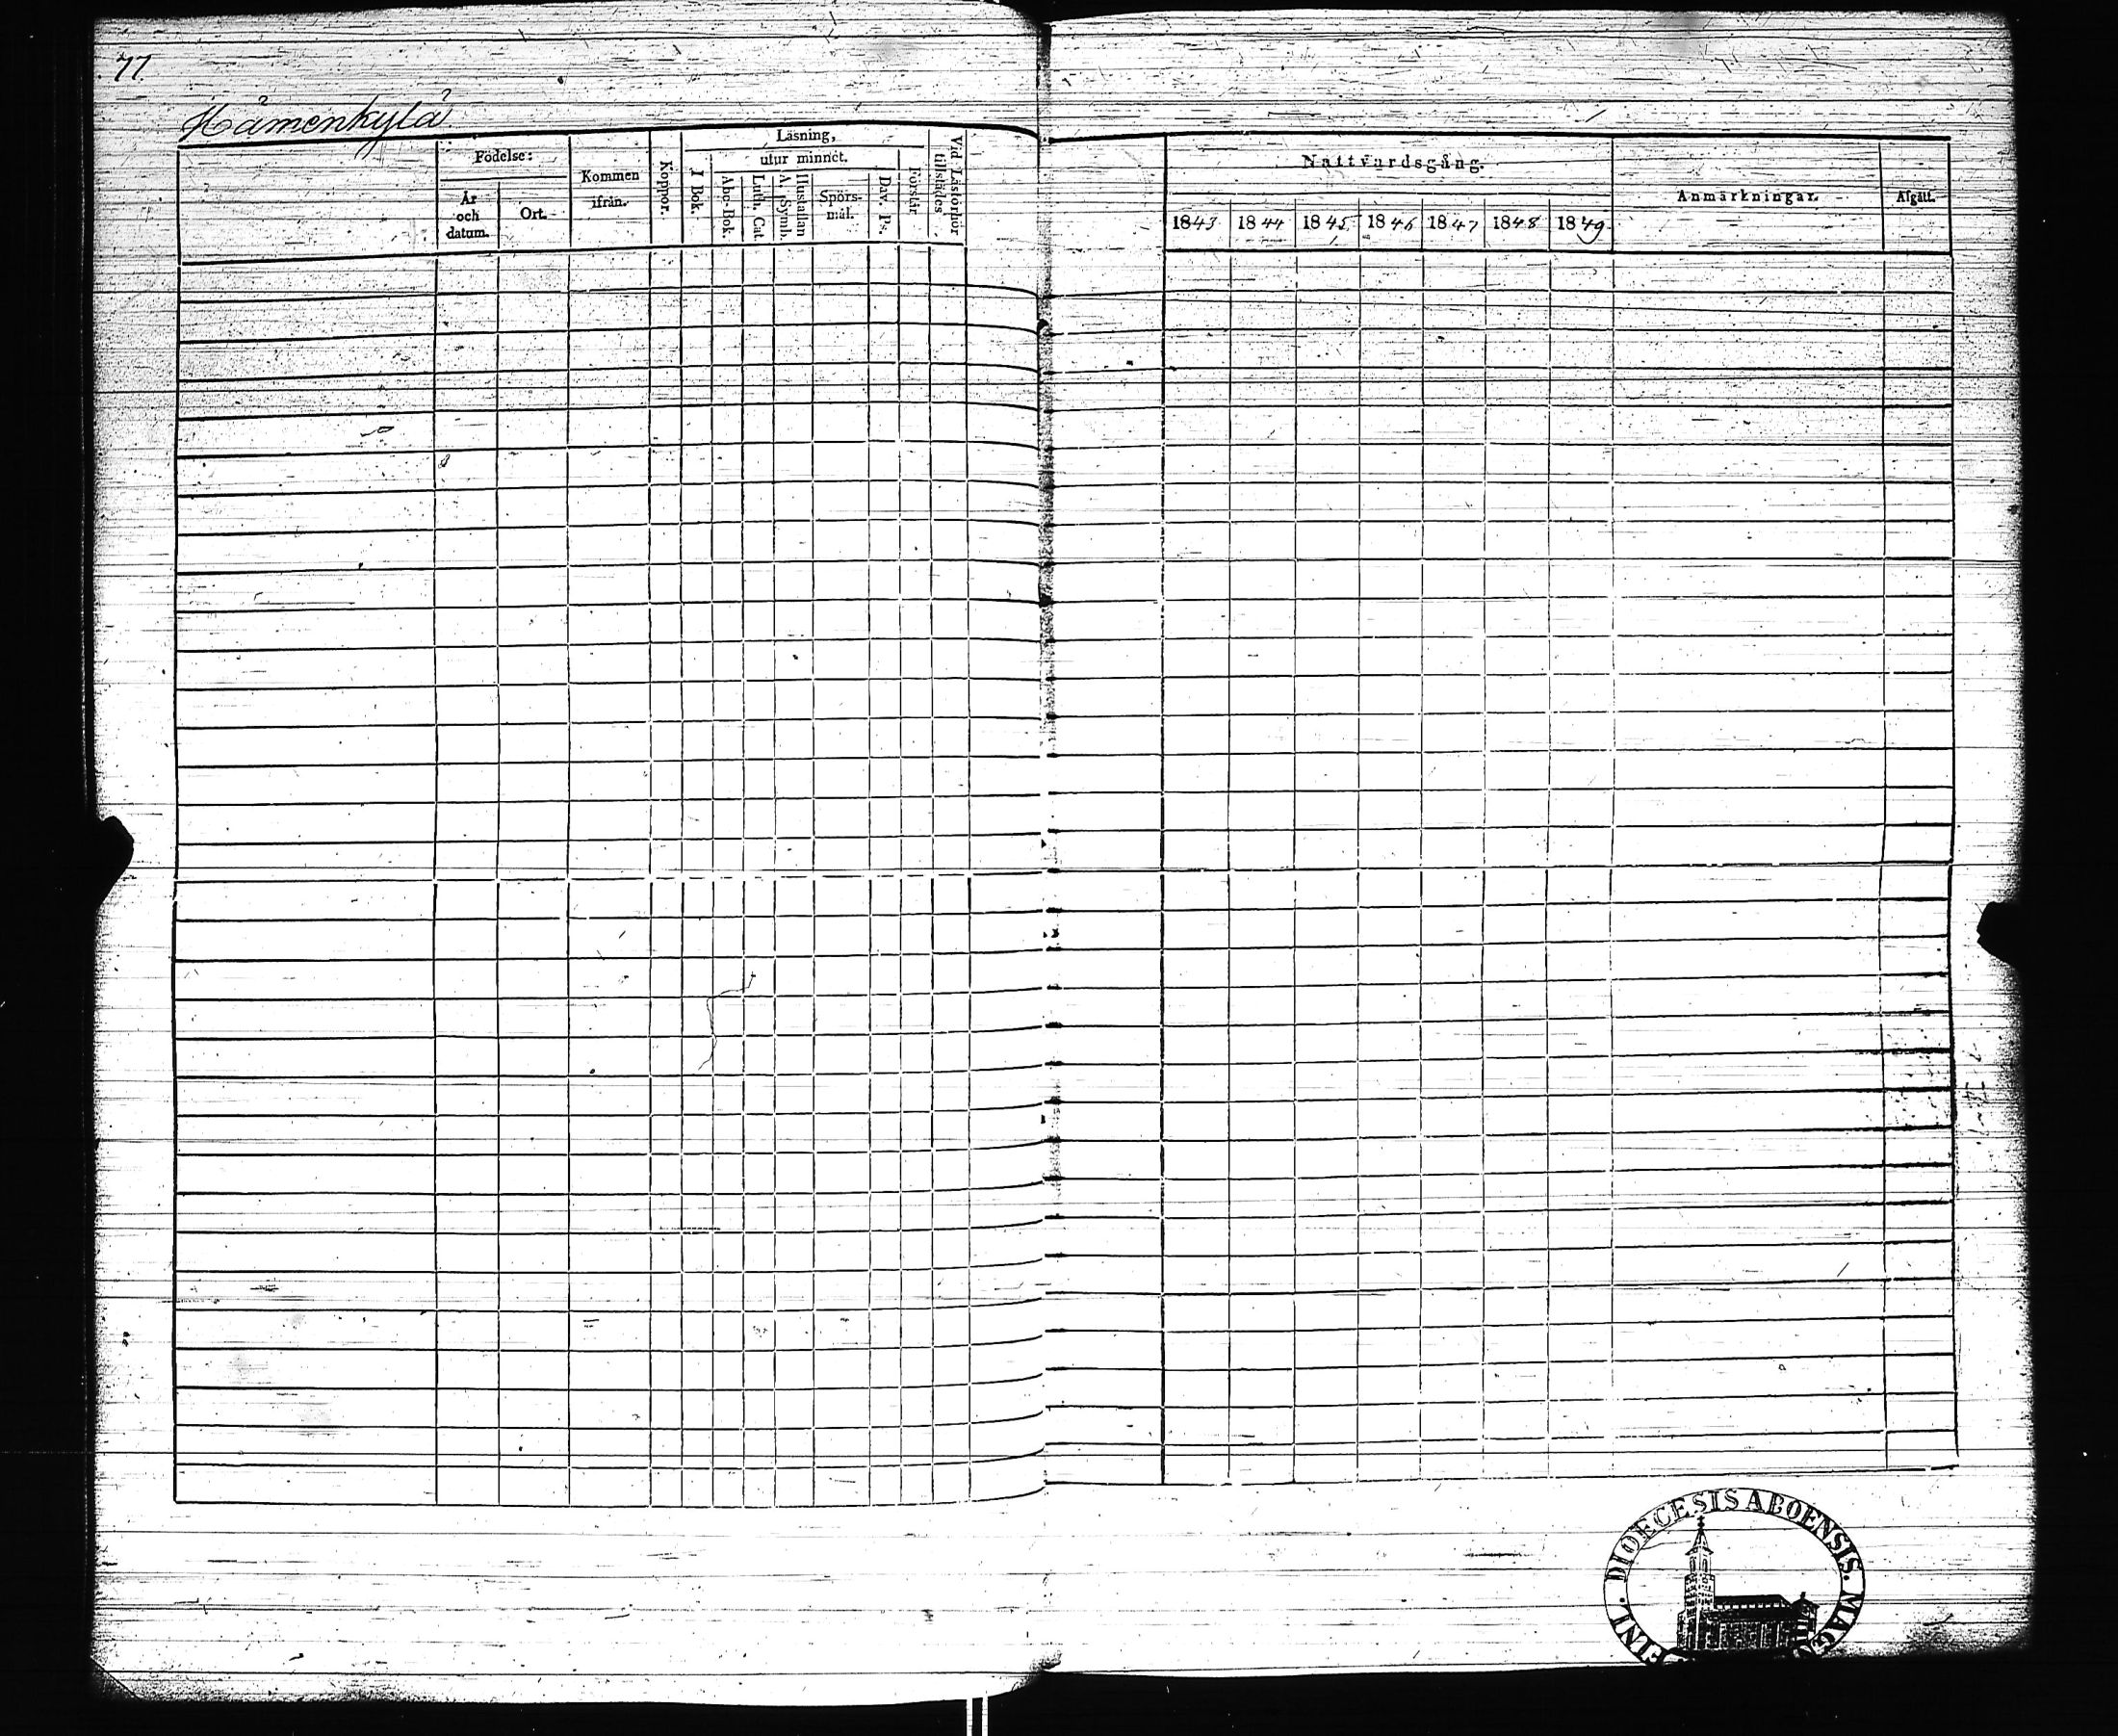 77
Hämenkylä
Födelse:
År och datum.
Ort.
Kommen ifrån.
Koppor.
Läsning,
utur minnet.
I Bok.
Abc-Bok.
Luth. Cat.
Hustaflan A. Symb.
Spörs-mål.
Dav. Ps.
Förstår
Vid Läsförhör tillstädes
Nattvardsgång.
1843 1844 1845 1846 1847 1848 1849
Anmärkningar.
Afgått.
DIOECESIS ABOENSIS.